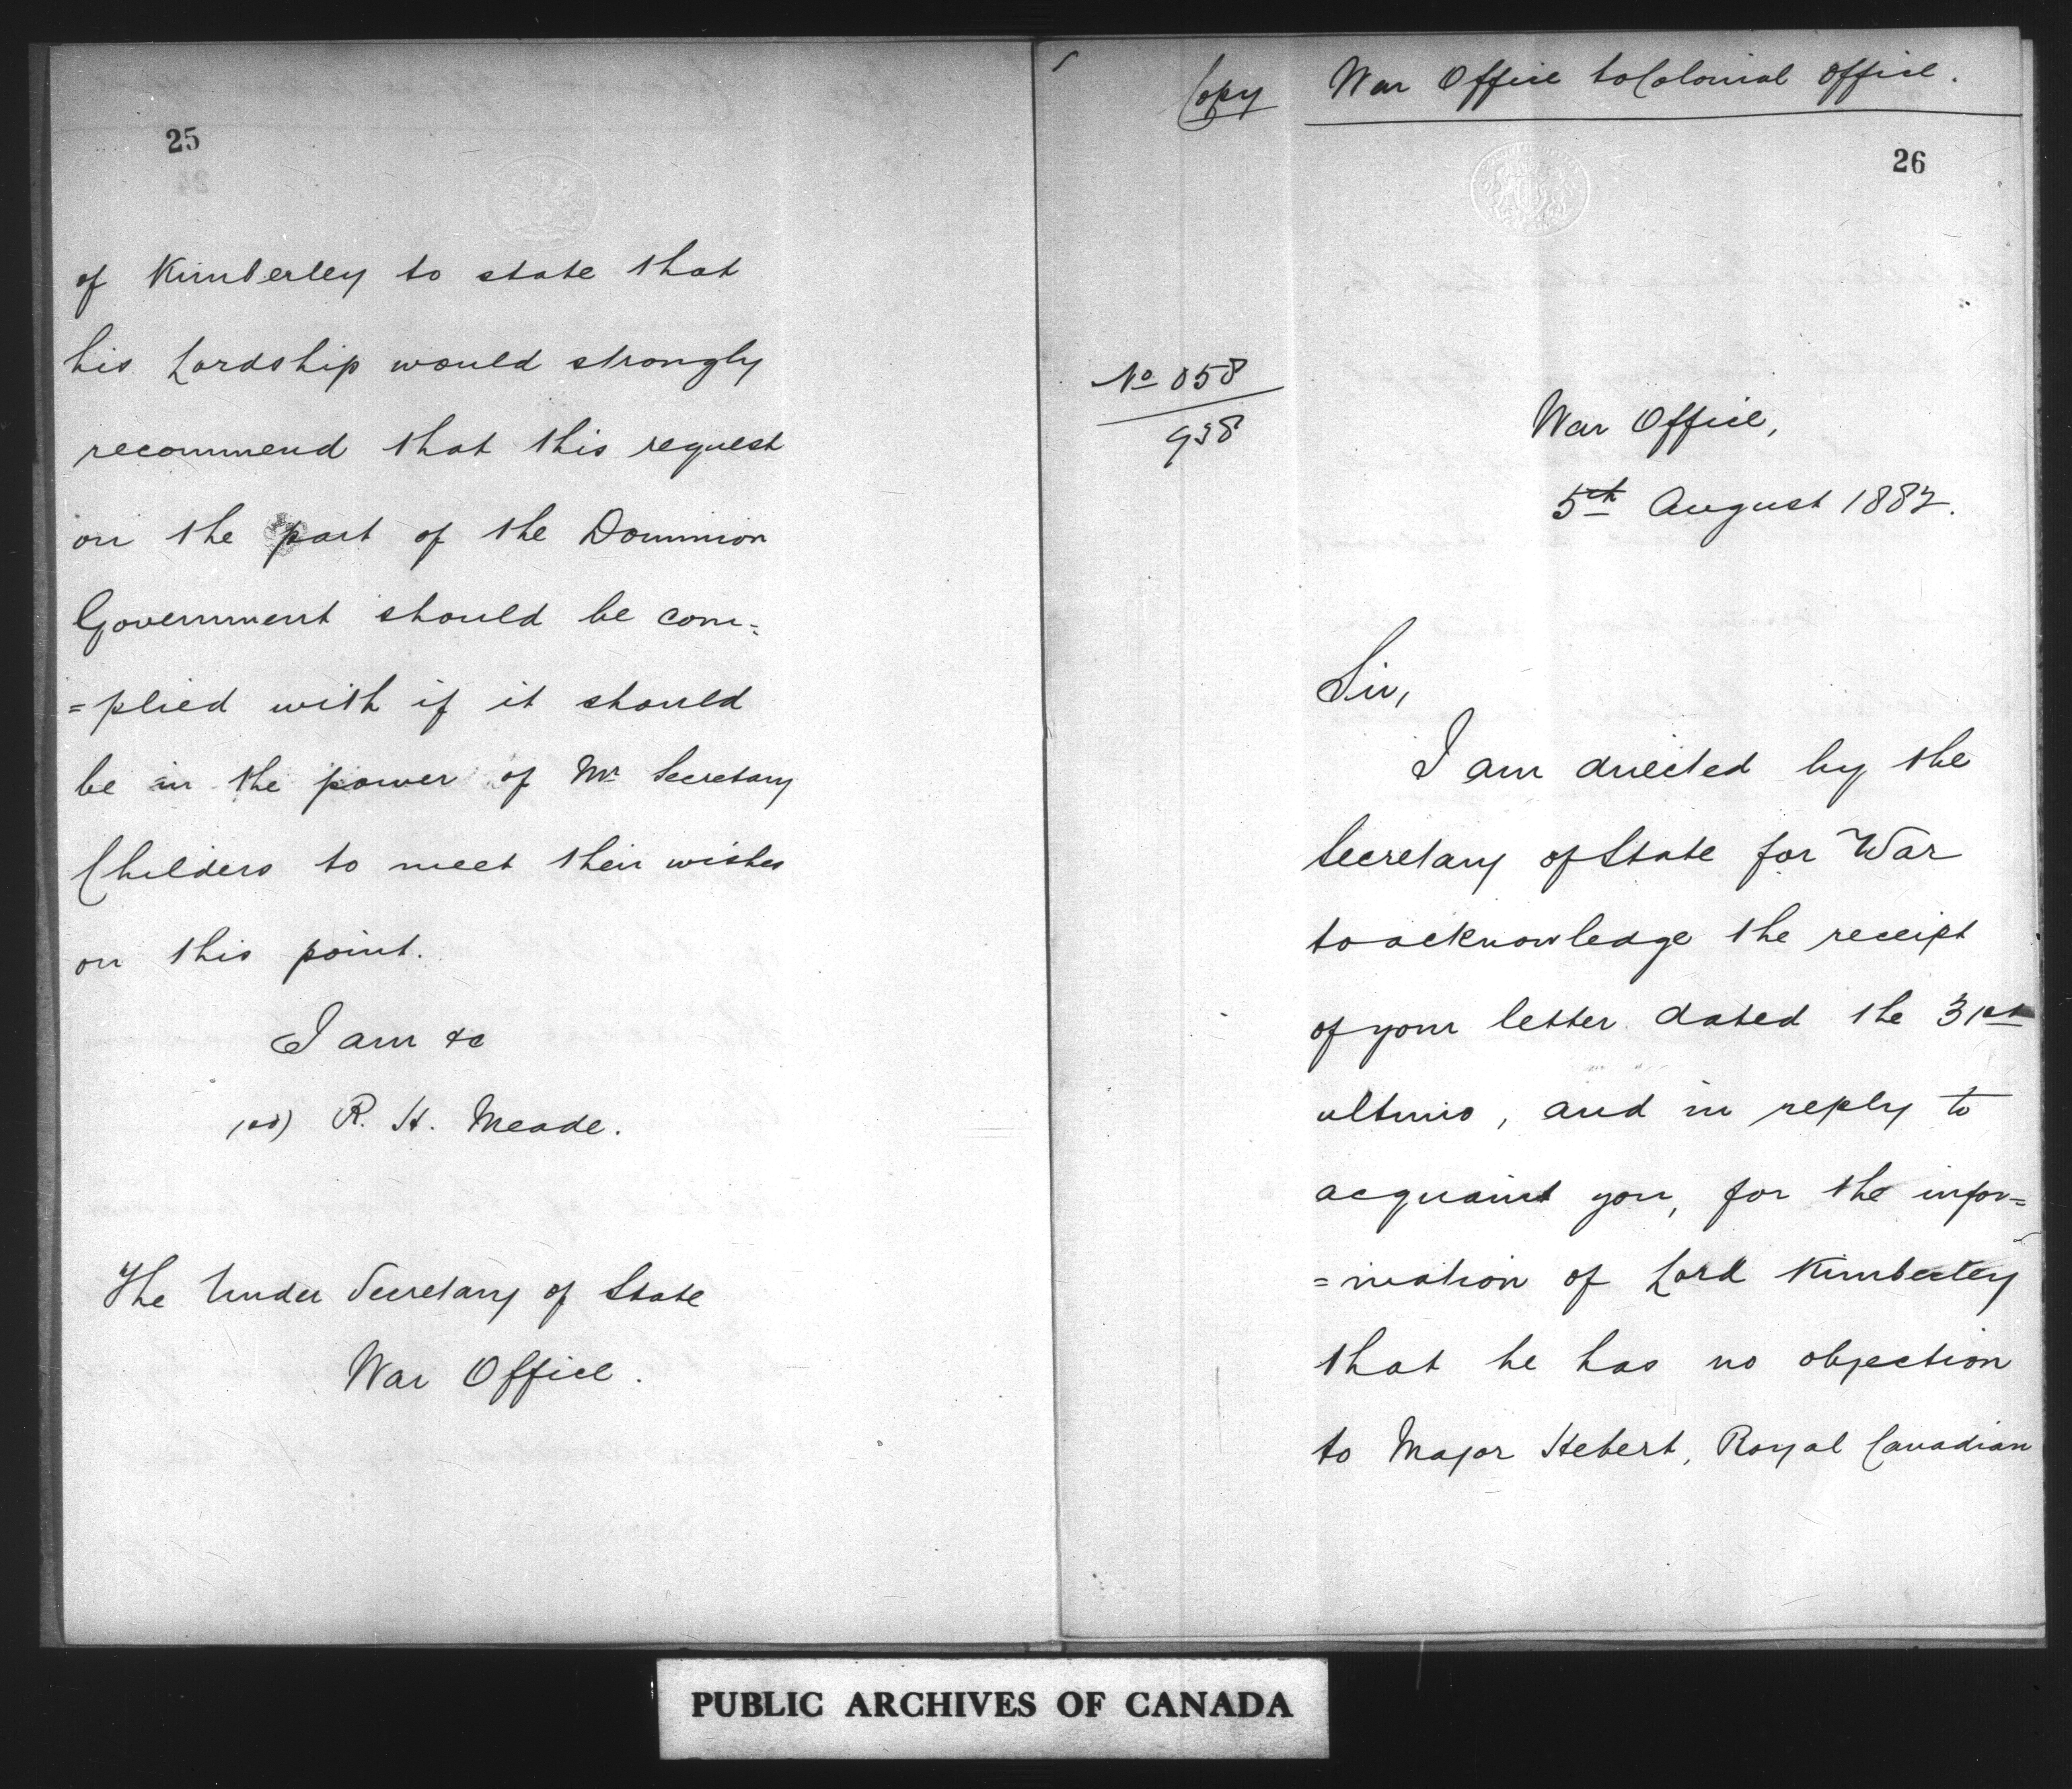 25
of Kimberley to state that
his Lordship would strongly
recommend that this request
on the part of the Dominion
Government should be com=
=plied with if it should
be in the power of Mr Secretary
Childers to meet their wishes
on this point.
I am &c
(sd) R. H. Meade.
The Under Secretary of State
War Office.
Copy War Office to Colonial Office.
26
No 058
938
War Office,
5th August 1882.
Sir,
I am directed by the
Secretary of State for War
to acknowledge the receipt
of your letter dated the 31st
ultimo, and in reply to
acquaint you, for the infor=
=mation of Lord Kimberley
that he has no objection
to Major Hebert, Royal Canadian
PUBLIC ARCHIVES OF CANADA